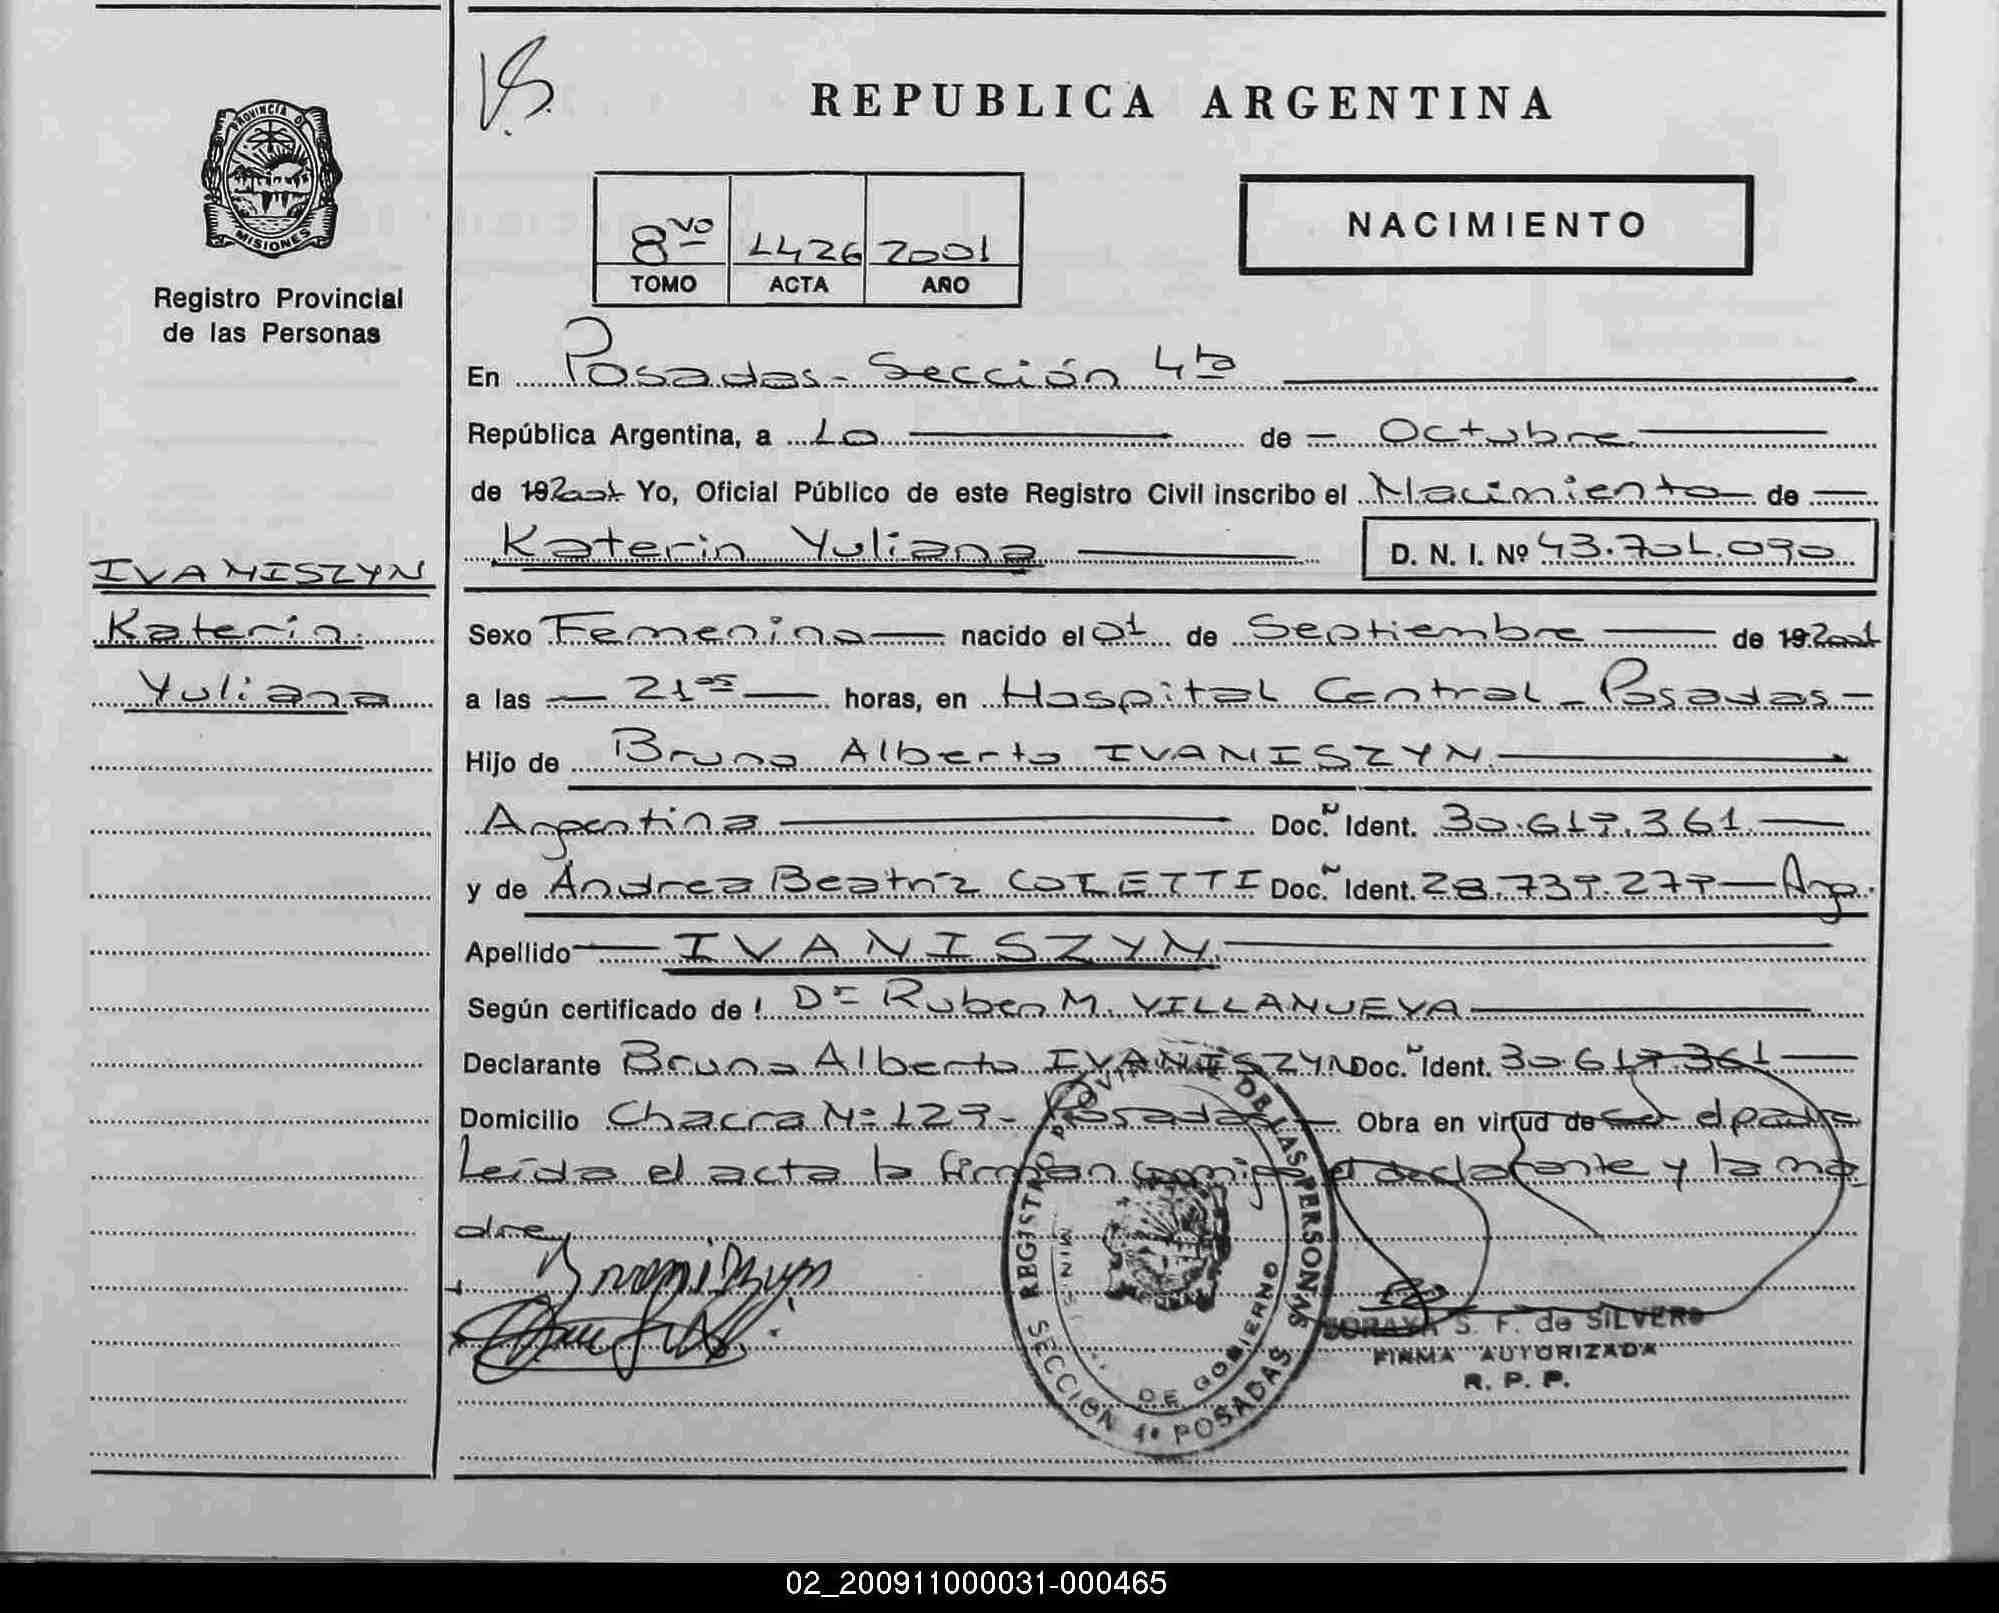 REPUBLICA ARGENTINA
PROVINCIA D
MISIONES
Registro Provincial
de las Personas
NACIMIENTO
8vo 1426 2001
TOMO ACTA AÑO
En Posadas - Sección 4ta
República Argentina, a 10 de Octubre
de 192001 Yo, Oficial Público de este Registro Civil inscribo el Nacimiento de
Katerin Yuliana D. N. I. Nº 43.701.090
IVANISZYN
Katerin
Yuliana
Sexo Femenino nacido el 01 de Septiembre de 192001
a las 21 05 horas, en Hospital Central - Posadas -
Hijo de Bruno Alberto IVANISZYN
Argentina Doc. Ident. 30.617.361
y de Andrea Beatriz COLETTI Doc. Ident. 28.739.277 - Arg.
Apellido IVANISZYN
Según certificado de : Dr Ruben M. VILLANUEVA
Declarante Bruno Alberto IVANISZYN Doc. Ident. 30.617.361
Domicilio Chacra Nº 129 - Posadas Obra en virtud de ser el padre
Leída el acta la firman conmigo el declarante y la ma
dre
REGISTRO PROVINCIAL DE LAS PERSONAS
DE GOBIERNO
SECCION 1º POSADAS
SORAYA S. F. de SILVERO
FIRMA AUTORIZADA
R. P. P.
02_200911000031-000465